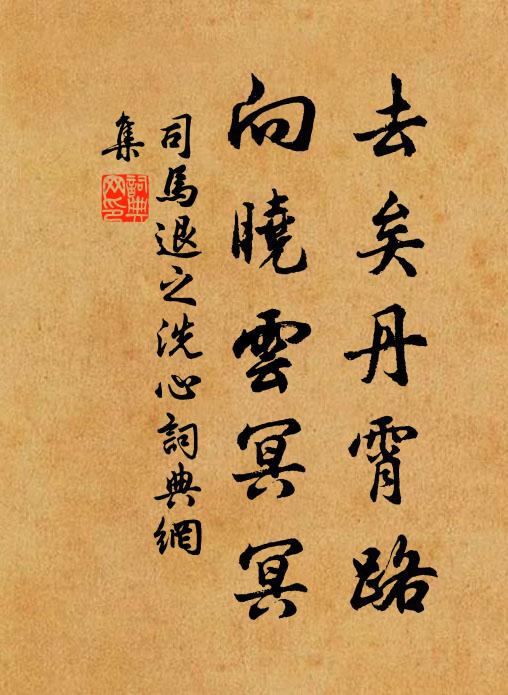 去矣丹霄路
向曉雲冥冥
司馬退之洗心詞典網
集
詞典
网印